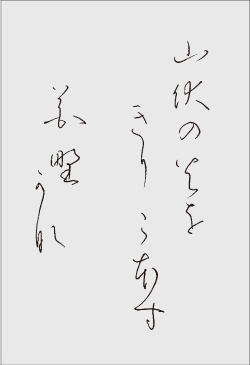 山伏の火を
きりこほす
花野かな